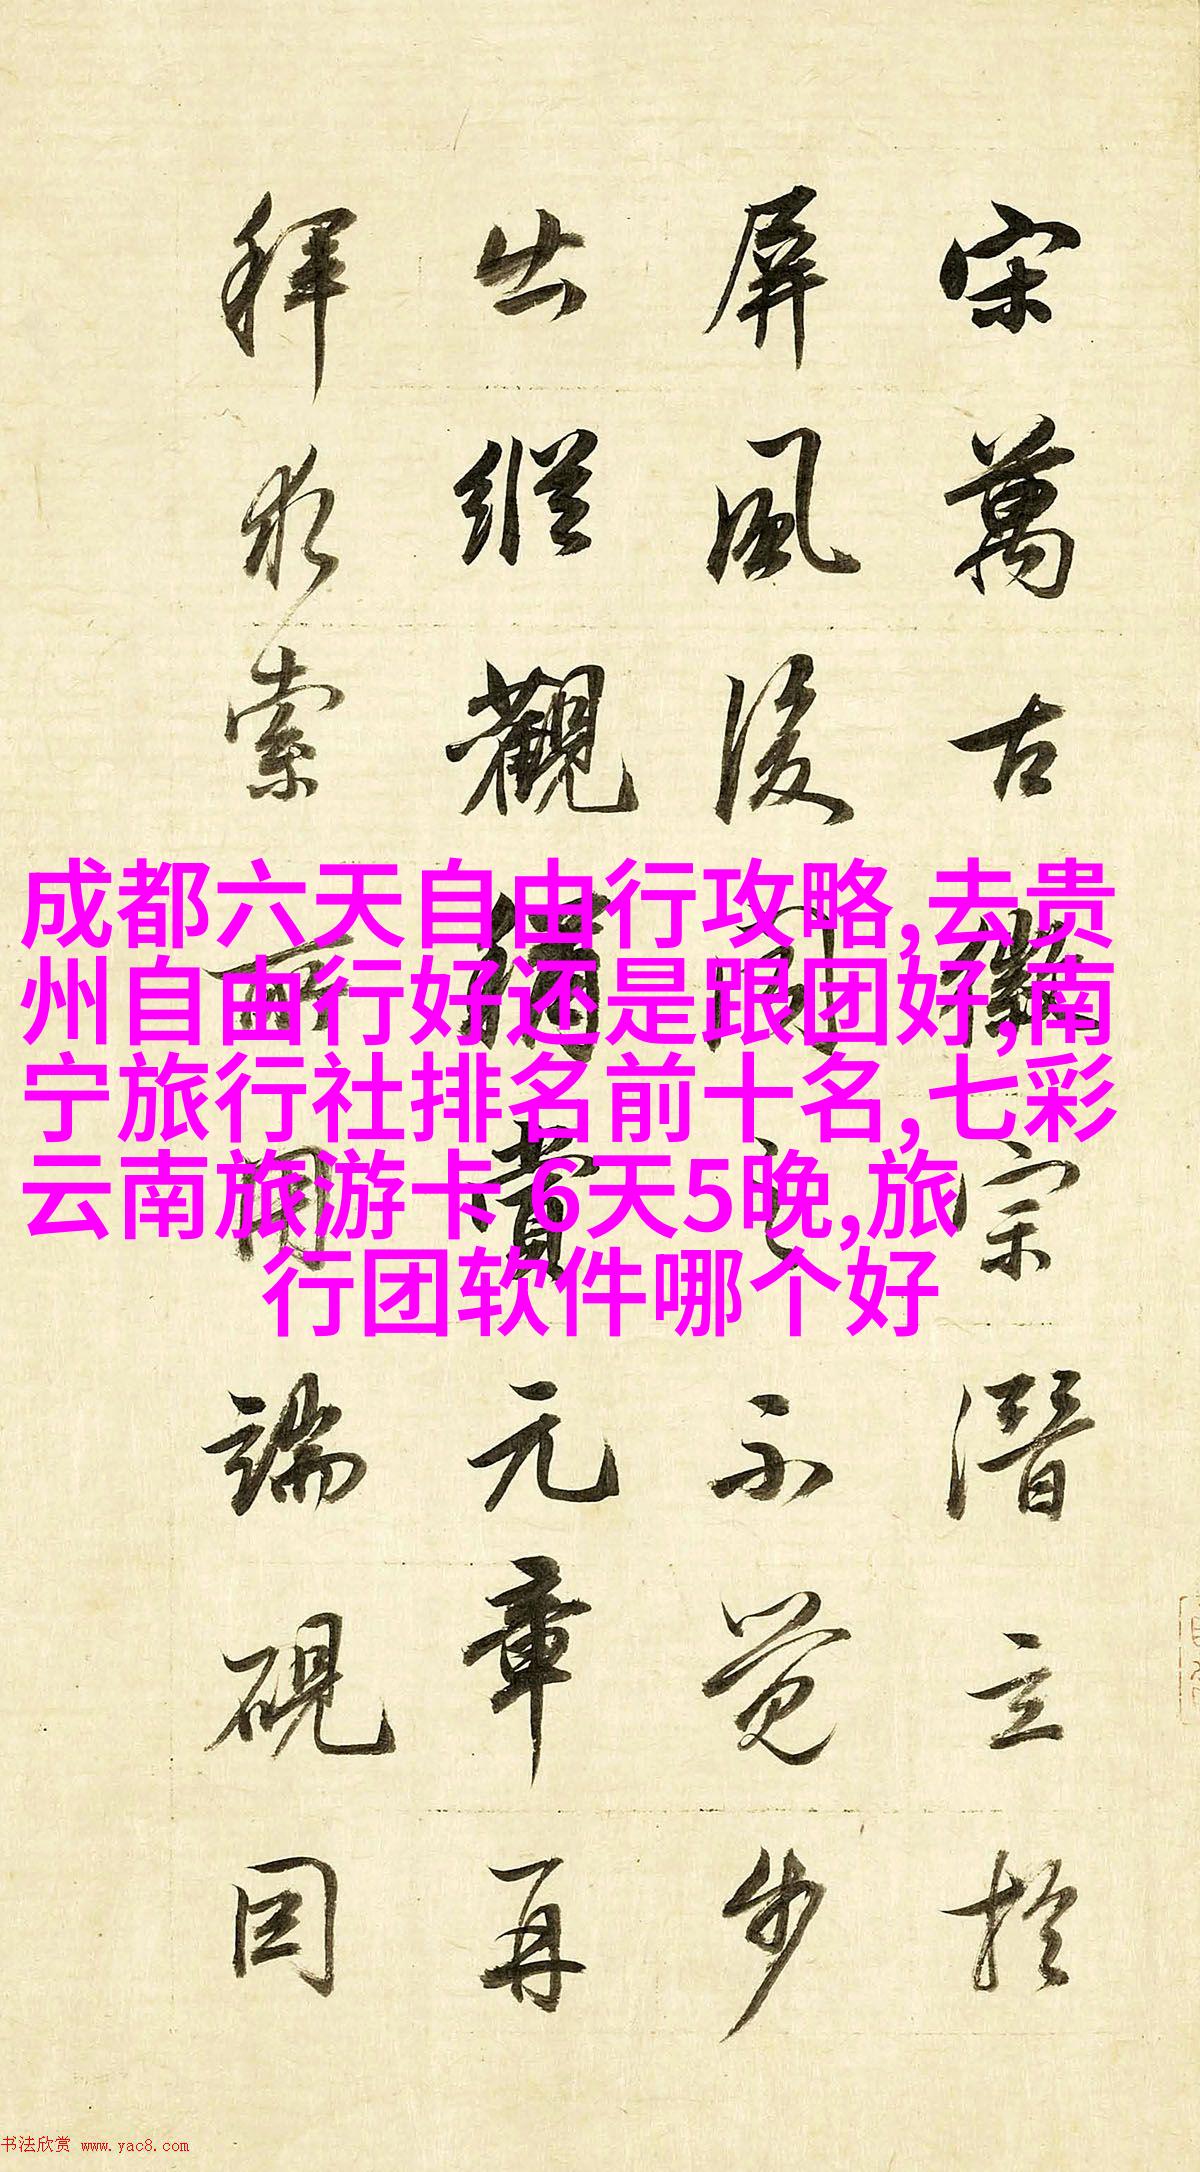 宋萬古徽宗潛立於
屏風後聞之不覺步
出縱觀稱賞元章再
拜求索所用端硯因
成都六天自由行攻略,去贵
州自由行好还是跟团好,南
宁旅行社排名前十名,七彩
云南旅游卡 6天5晚,旅
行团软件哪个好
书法欣赏 www.yac8.com